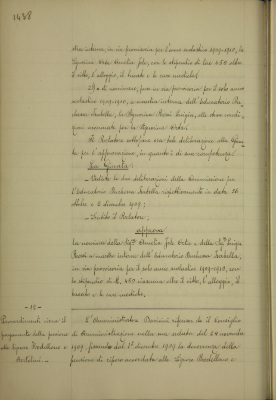 1438
stra interna, in via provvisoria per l'anno scolastico 1909-1910, la
Signorina Orta Amalia Jole, con lo stipendio di lire 480 oltre
il vitto, l'alloggio, il bucato e le cure mediche;
2) di nominare, pure in via provvisoria per il solo anno
scolastico 1909-1910, a maestra interna dell'Educatorio
Isabella, la Signorina Rossi Luigia, alle stesse condi-
zioni enunciate per la Signorina Orta.
Il Relatore sottopone tale deliberazione alla Giun-
ta per l'approvazione, in quanto è di sua competenza.
La Giunta
- Vedute le due deliberazioni della Commissione per
l'Educatorio Isabella rispettivamente in data 26
ottobre e 6 dicembre 1909;
- Sentito il Relatore;
approva
la nomina della Sig.na Amalia Jole Orta e della Sig.na Luigia
Rossi a maestre interne dell'Educatorio Isabella,
in via provvisoria per il solo anno scolastico 1909-1910, con
lo stipendio di L. 480 ciascuna oltre il vitto, l'alloggio, il
bucato e le cure mediche.
- 19 -
Provvedimenti circa il
pagamento della pensione
alle Signore
L'Amministratore riferisce che il Consiglio
di Amministrazione nella sua seduta del 24 novembre
1909 fissando dal 1° dicembre 1909 la decorrenza della
pensione di riposo accordata alle Signore